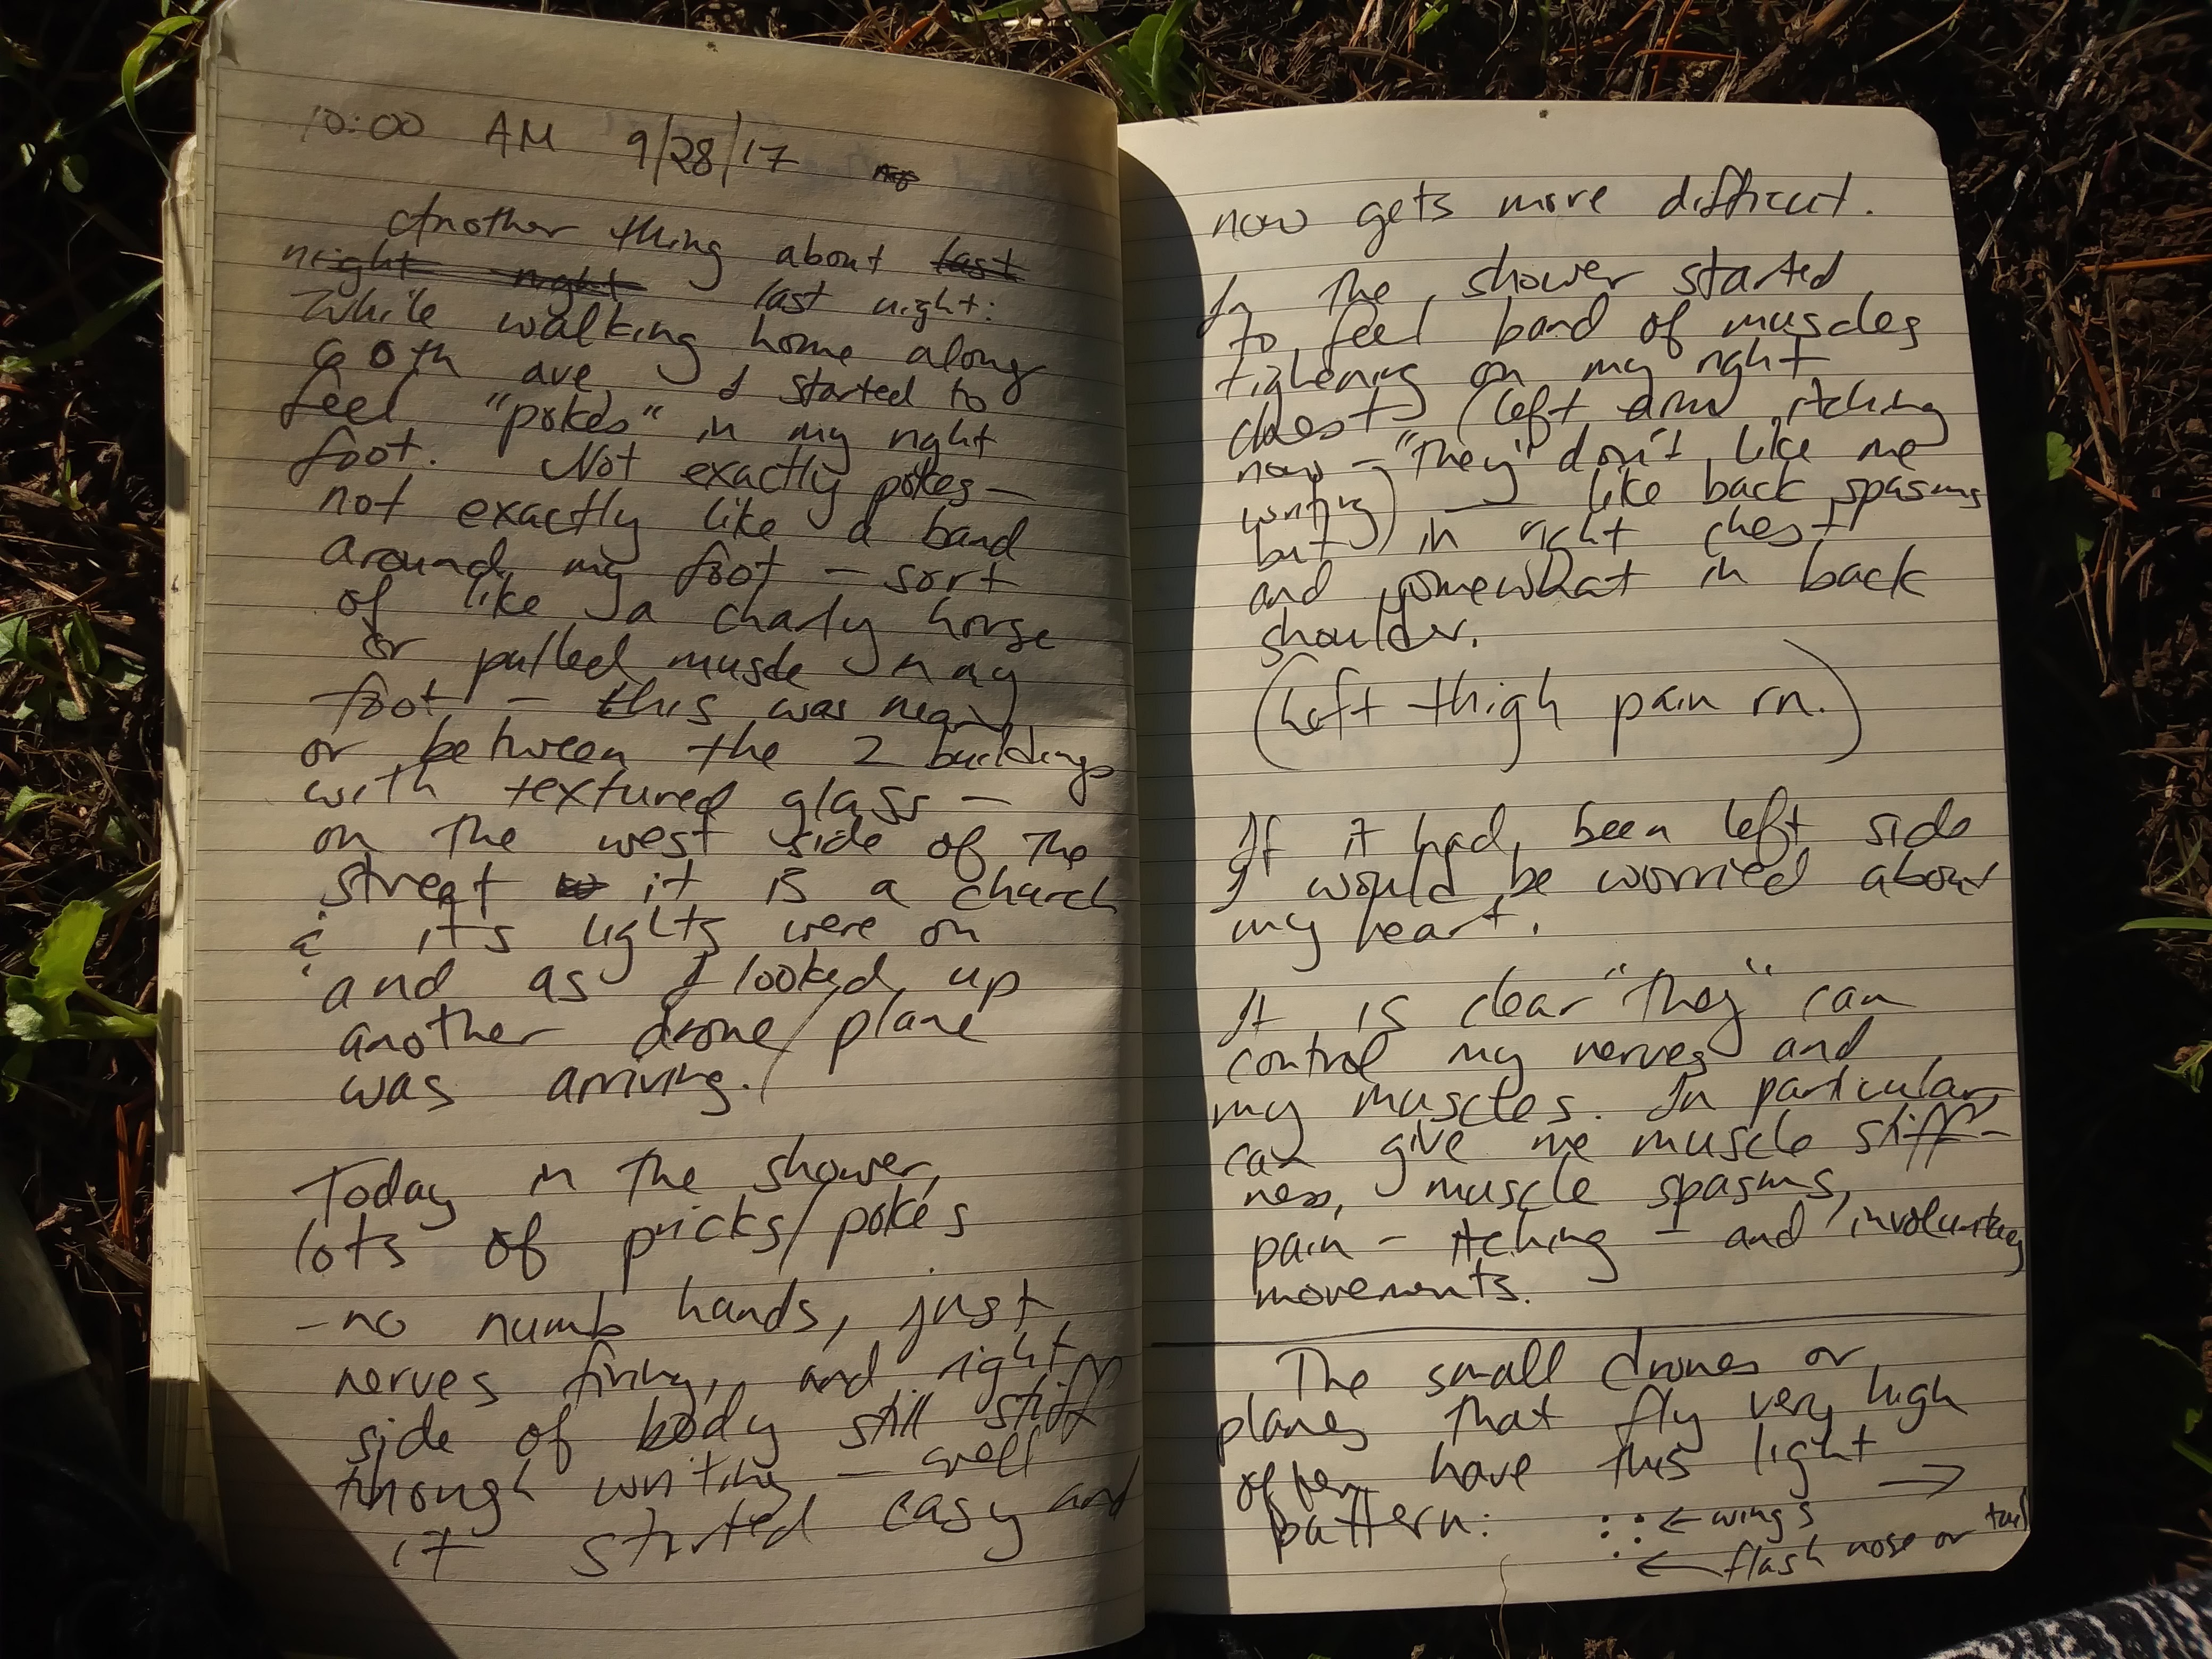 10:00 AM 9/28/17
Another thing about last
night night last night:
While walking home along
60th ave, I started to
feel "pokes" in my right
foot. Not exactly pokes —
not exactly like a band
around my foot — sort
of like a charly horse
or pulled muscle in my
foot — this was near
or between the 2 buildings
with textured glass —
on the west side of the
street it is a church
& its lights were on
and as I looked up
another drone/plane
was arriving.
Today in the shower,
lots of pricks/pokes
- no numb hands, just
nerves firing, and right
side of body still stiff
though writing — well
it started easy and
now gets more difficult.
In the shower started
to feel band of muscles
tightening on my right
chest (left arm itching
now - "They" don't like me
writing) — like back spasms
but in right chest
and somewhat in back
shoulder.
(Left thigh pain rn.)
If it had been left side
I would be worried about
my heart.
It is clear "they" can
control my nerves and
my muscles. In particular,
can give me muscle stiff-
ness, muscle spasms,
pain - itching - and involuntary
movements.
The small drones or
planes that fly very high
often have this light →
pattern: ← wings
← flash nose or tail